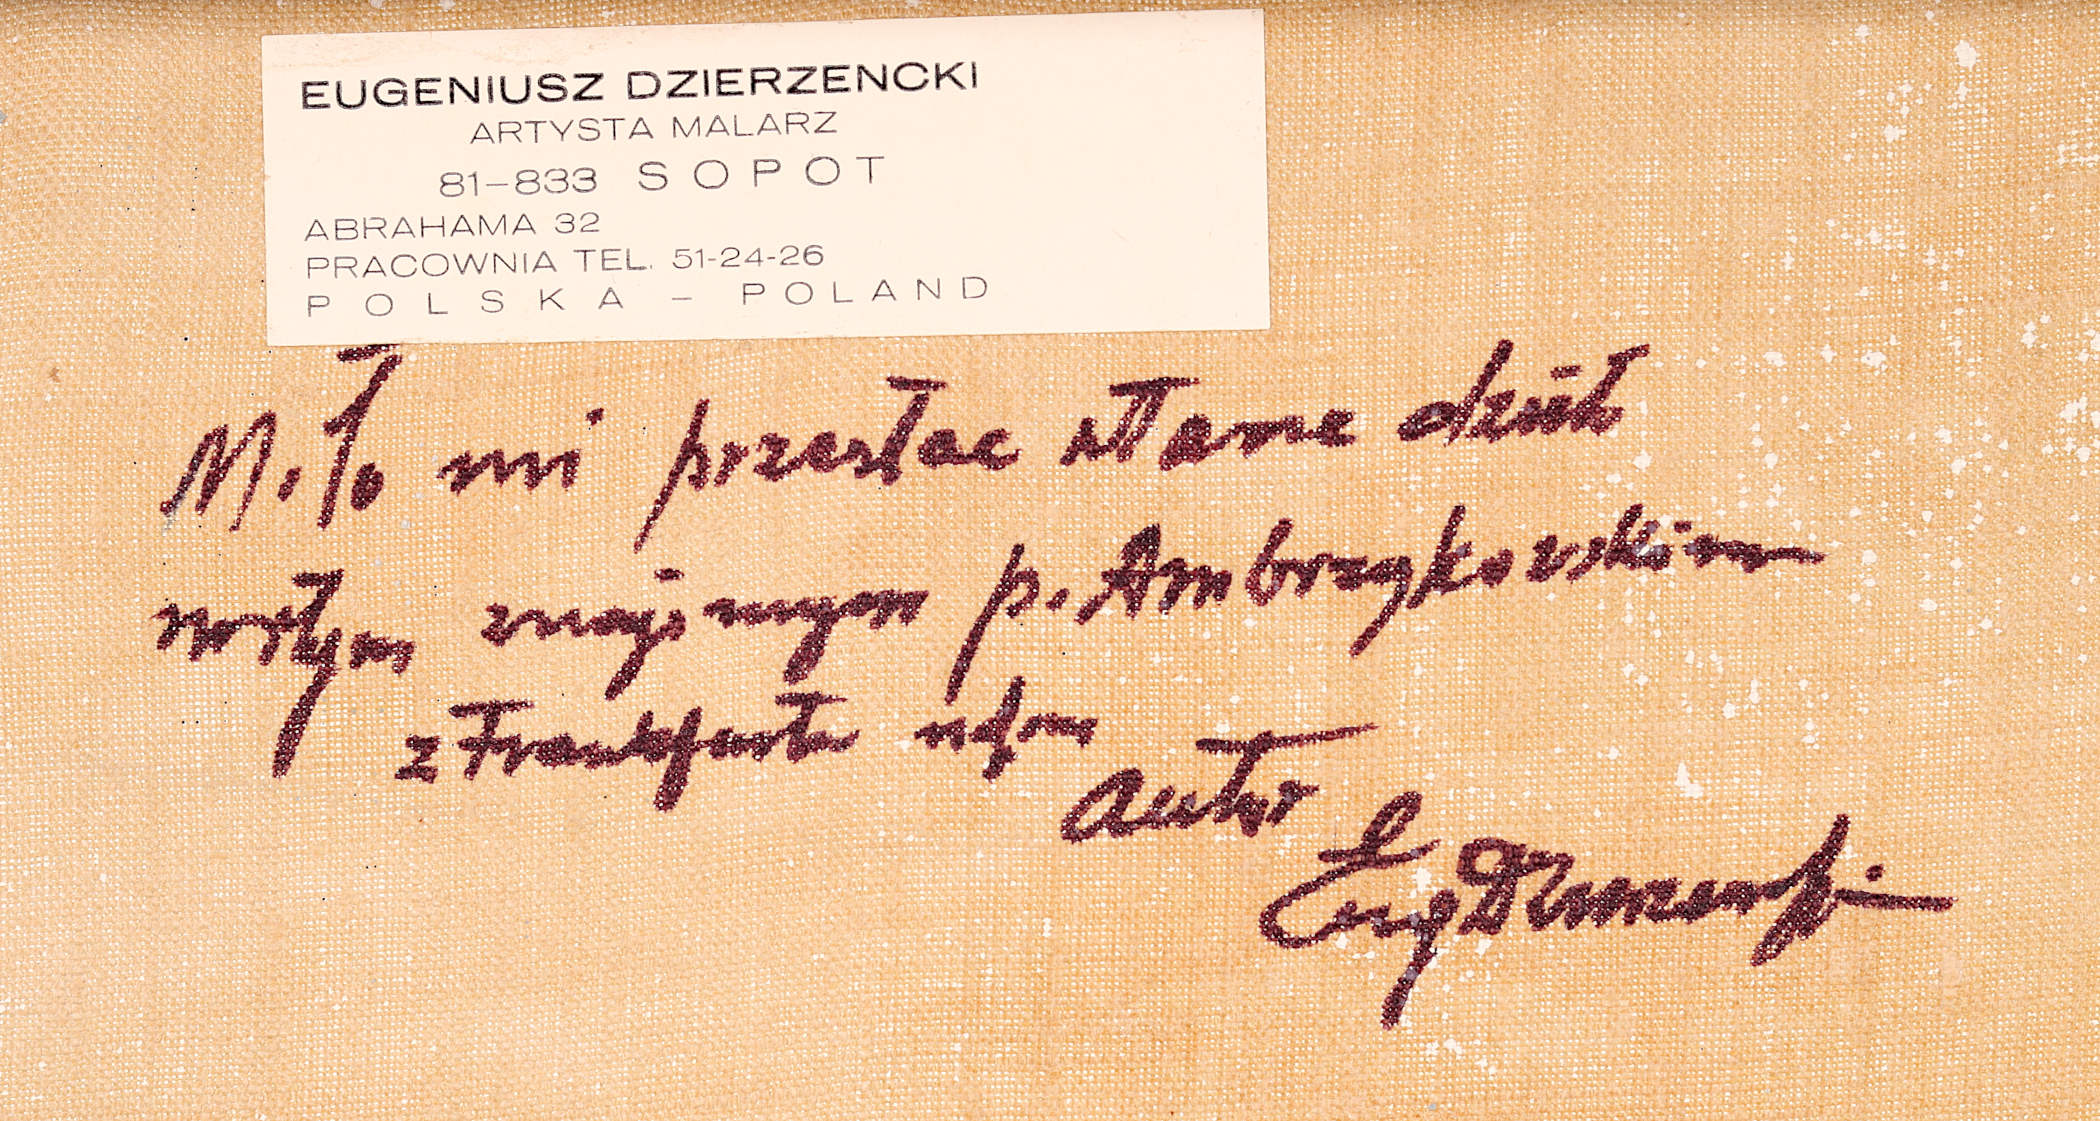 EUGENIUSZ DZIERZENCKI
ARTYSTA MALARZ
81-833 SOPOT
ABRAHAMA 32
PRACOWNIA TEL. 51-24-26
POLSKA - POLAND
Miło mi przesłać
miłym znajomym p. Ambrzykowskim
z Frankfurtu
autor
Eug Dzierzencki